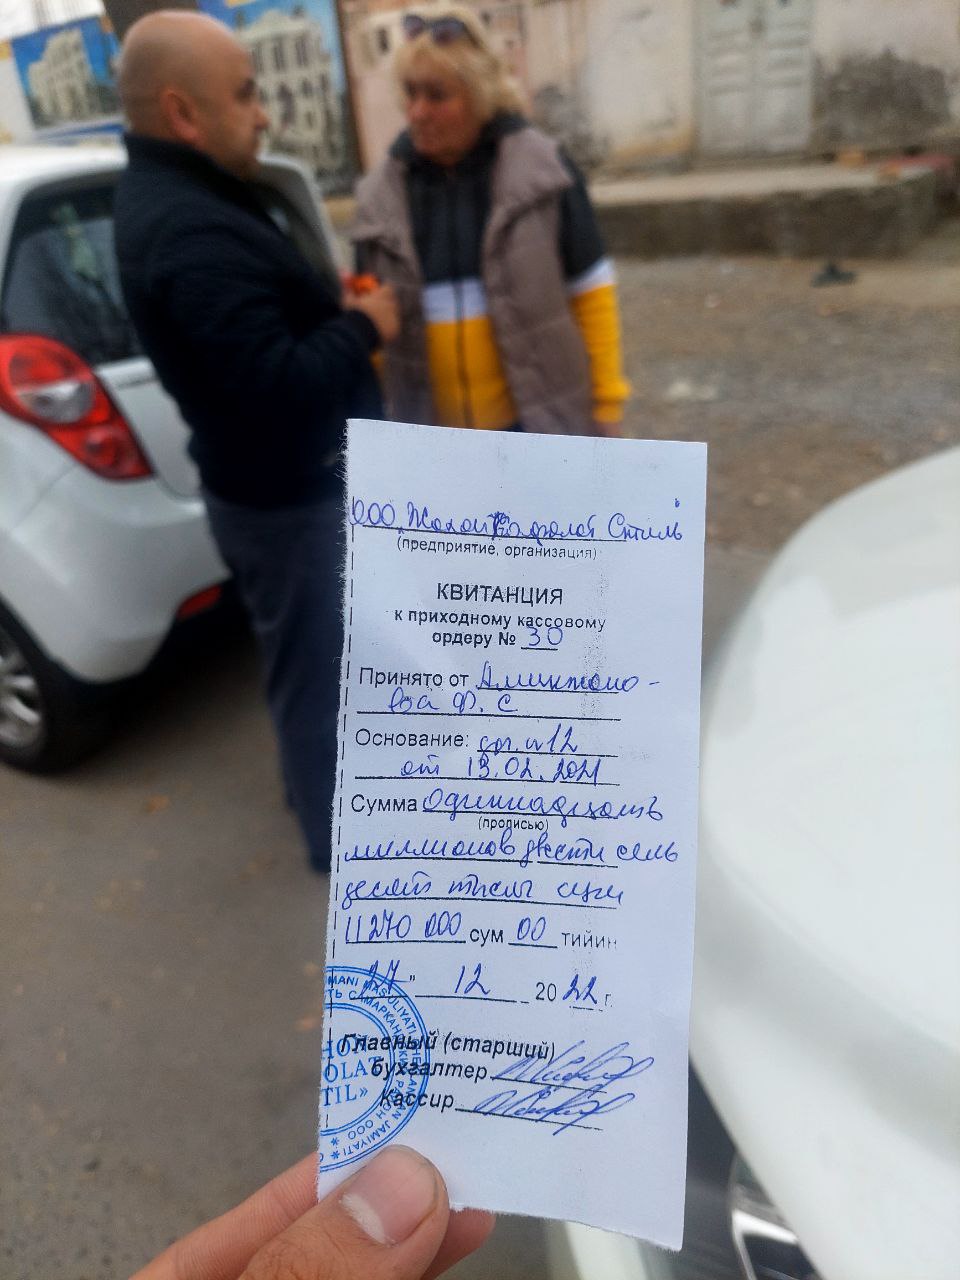 ООО „Жахон Кафолат Стиль"
(предприятие, организация)
КВИТАНЦИЯ
к приходному кассовому
ордеру № 30
Принято от
ва Ф. С
Основание: дог. № 12
от 13.02.2021
Сумма Одиннадцать
(прописью)
миллионов двести семь
десят тысяч сум
11 270 000 сум 00 тийин
27" 12 2022 г.
Главный (старший)
бухгалтер
Кассир
MANI MAS'ULIYATI CHEKLANGAN JAMIYATI *
ТЬ САМАРКАНДСКИЙ РАЙОН ООО *
HON
OLAT
TIL»